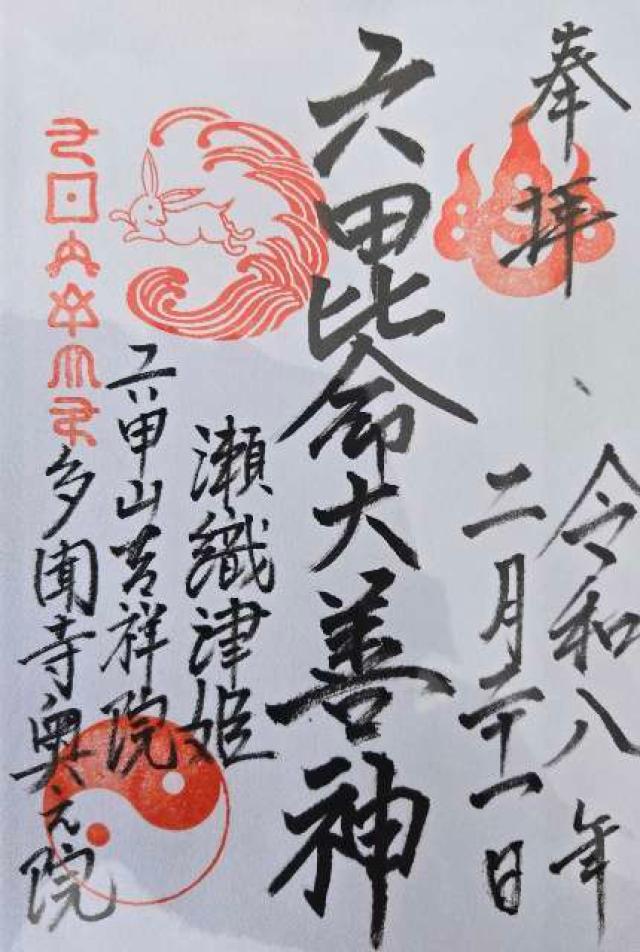 奉拝
令和八年
二月二十一日
六甲比命大善神
瀬織津姫
六甲山吉祥院
多聞寺奥之院